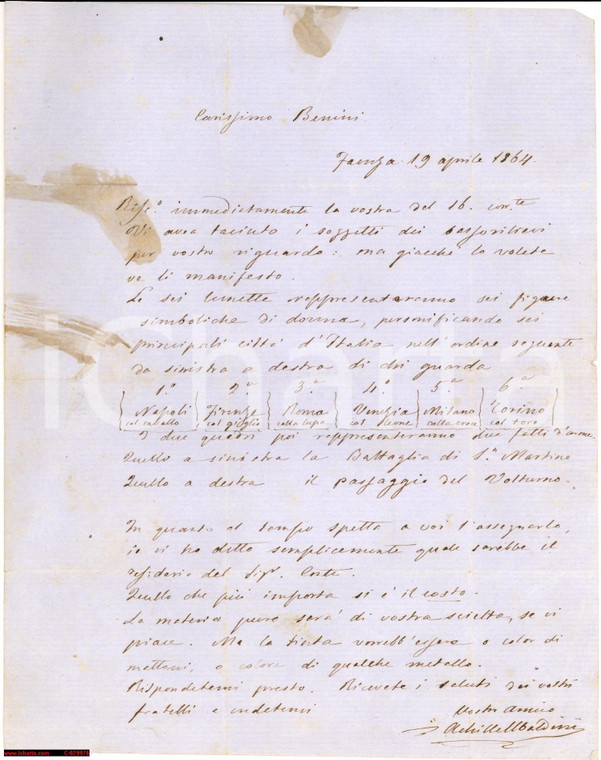 Carissimo Benini
Faenza 19 aprile 1864.
immediatamente la vostra del 16. corr.te
Vi avea taciuto i soggetti dei bassorilievi
per vostro riguardo: ma giacchè lo volete
ve li manifesto.
Le sei lunette rappresenteranno sei figure
simboliche di donna, personificando sei
principali città d'Italia nell'ordine seguente
da sinistra a destra di chi guarda
1.a 2.a 3.a 4.a 5.a 6.a
Napoli Firenze Roma Venezia Milano Torino
col cavallo col giglio colla lupa col leone colla croce col toro
I due quadri poi rappresenteranno due fatti d'arme.
Quello a sinistra la Battaglia di S.n Martino
Quello a destra il passaggio del Volturno.
In quanto al tempo spetta a voi l'assegnarlo,
io vi ho detto semplicemente quale sarebbe il
desiderio del Sigr. Conte.
Quello che più importa si è il costo.
La materia pure sarà di vostra scielta, se vi
piace. Ma la tinta vorrebb'essere o color di
, o colore di qualche metallo.
Rispondetemi presto. Ricevete i saluti dei vostri
fratelli e credetemi
Vostro amico
Achille Ubaldini
iCharta
www.icharta.com